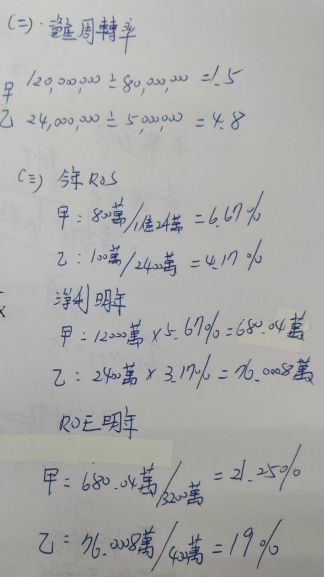 (二)·資產周轉率
甲 120,000,000 ÷ 80,000,000 = 1.5
乙 24,000,000 ÷ 5,000,000 = 4.8
(三) 今年 ROS
甲：800萬/1億2千萬 = 6.67%
乙：100萬/2400萬 = 4.17%
淨利明年
甲：12000萬 × 5.67% = 680.04萬
乙：2400萬 × 3.17% = 76.0008萬
ROE明年
甲：680.04萬/3200萬 = 21.25%
乙：76.0008萬/400萬 = 19%